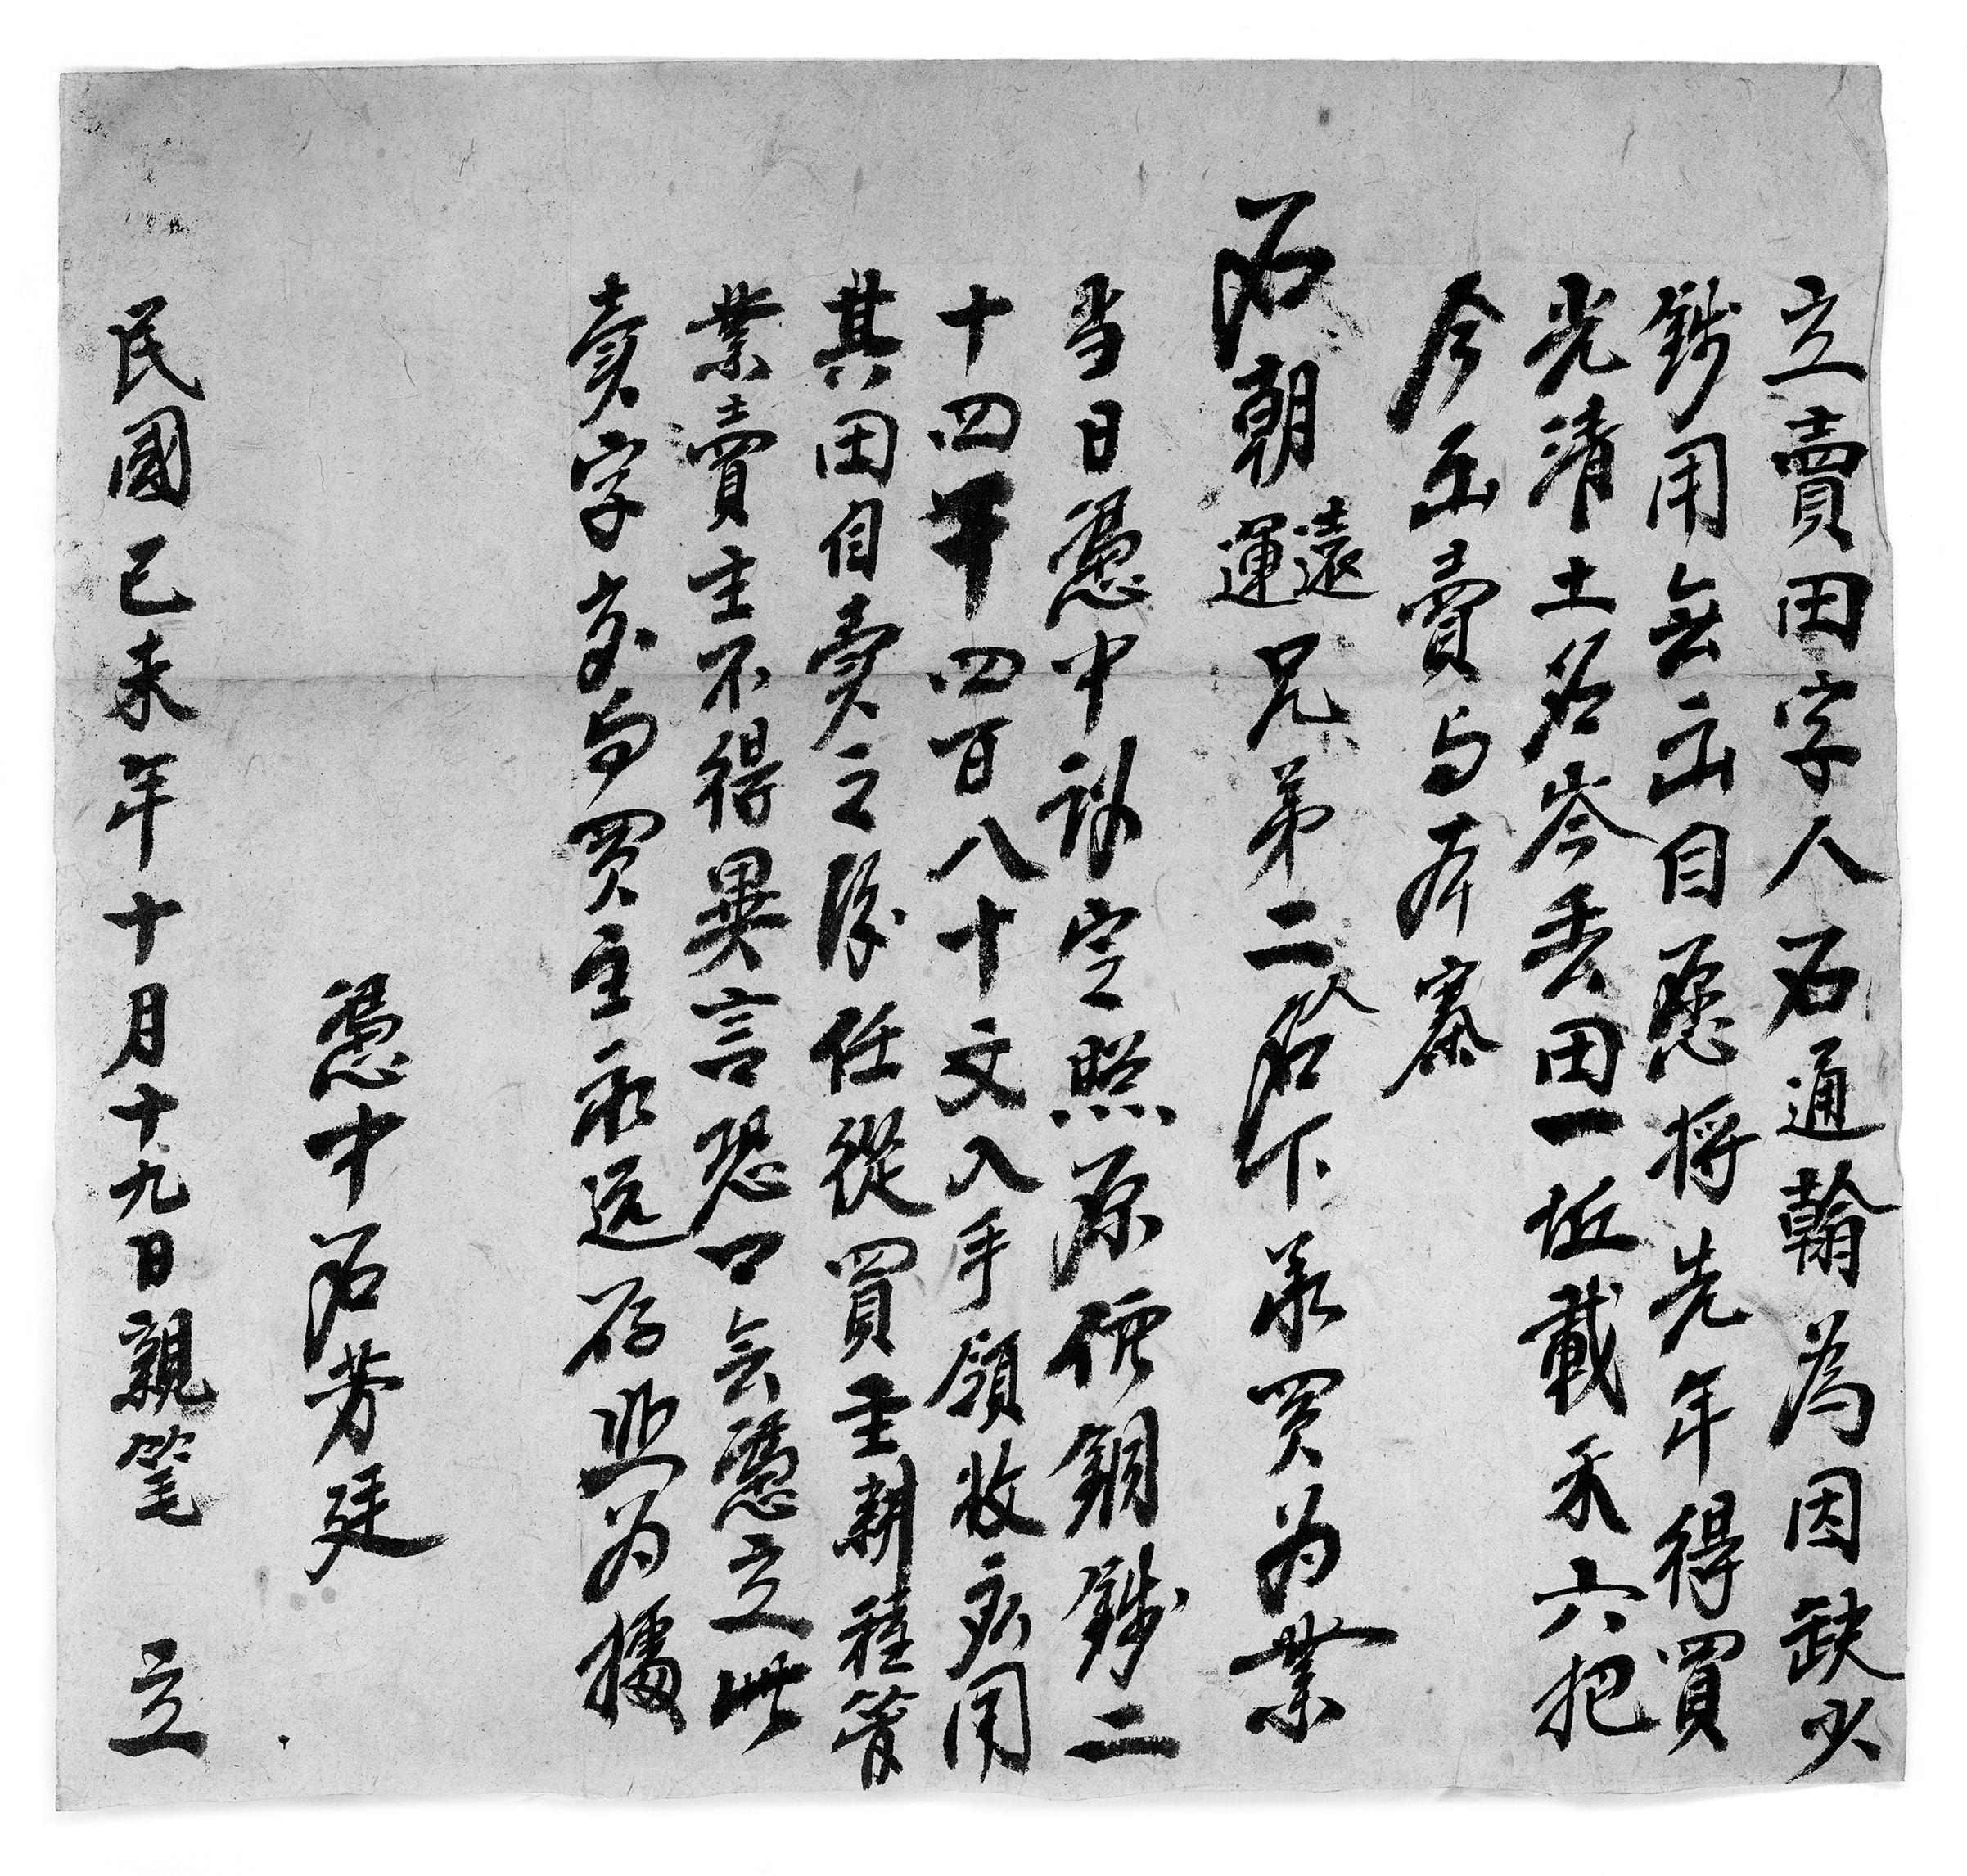 立賣田字人石通翰為因缺少
錢用無出自愿将先年得買
光清土名岑丢田一坵載禾六把
今出賣与本寨
石朝遠運兄弟二人名下承買为業
当日憑中议定照原价銅錢二
十四千四百八十文入手領收應用
其田自卖之後任從買主耕種管
業賣主不得異言恐口無憑立此
卖字交与买主永远存照为據
憑中石芳廷
民國己未年十月十九日親筆 立